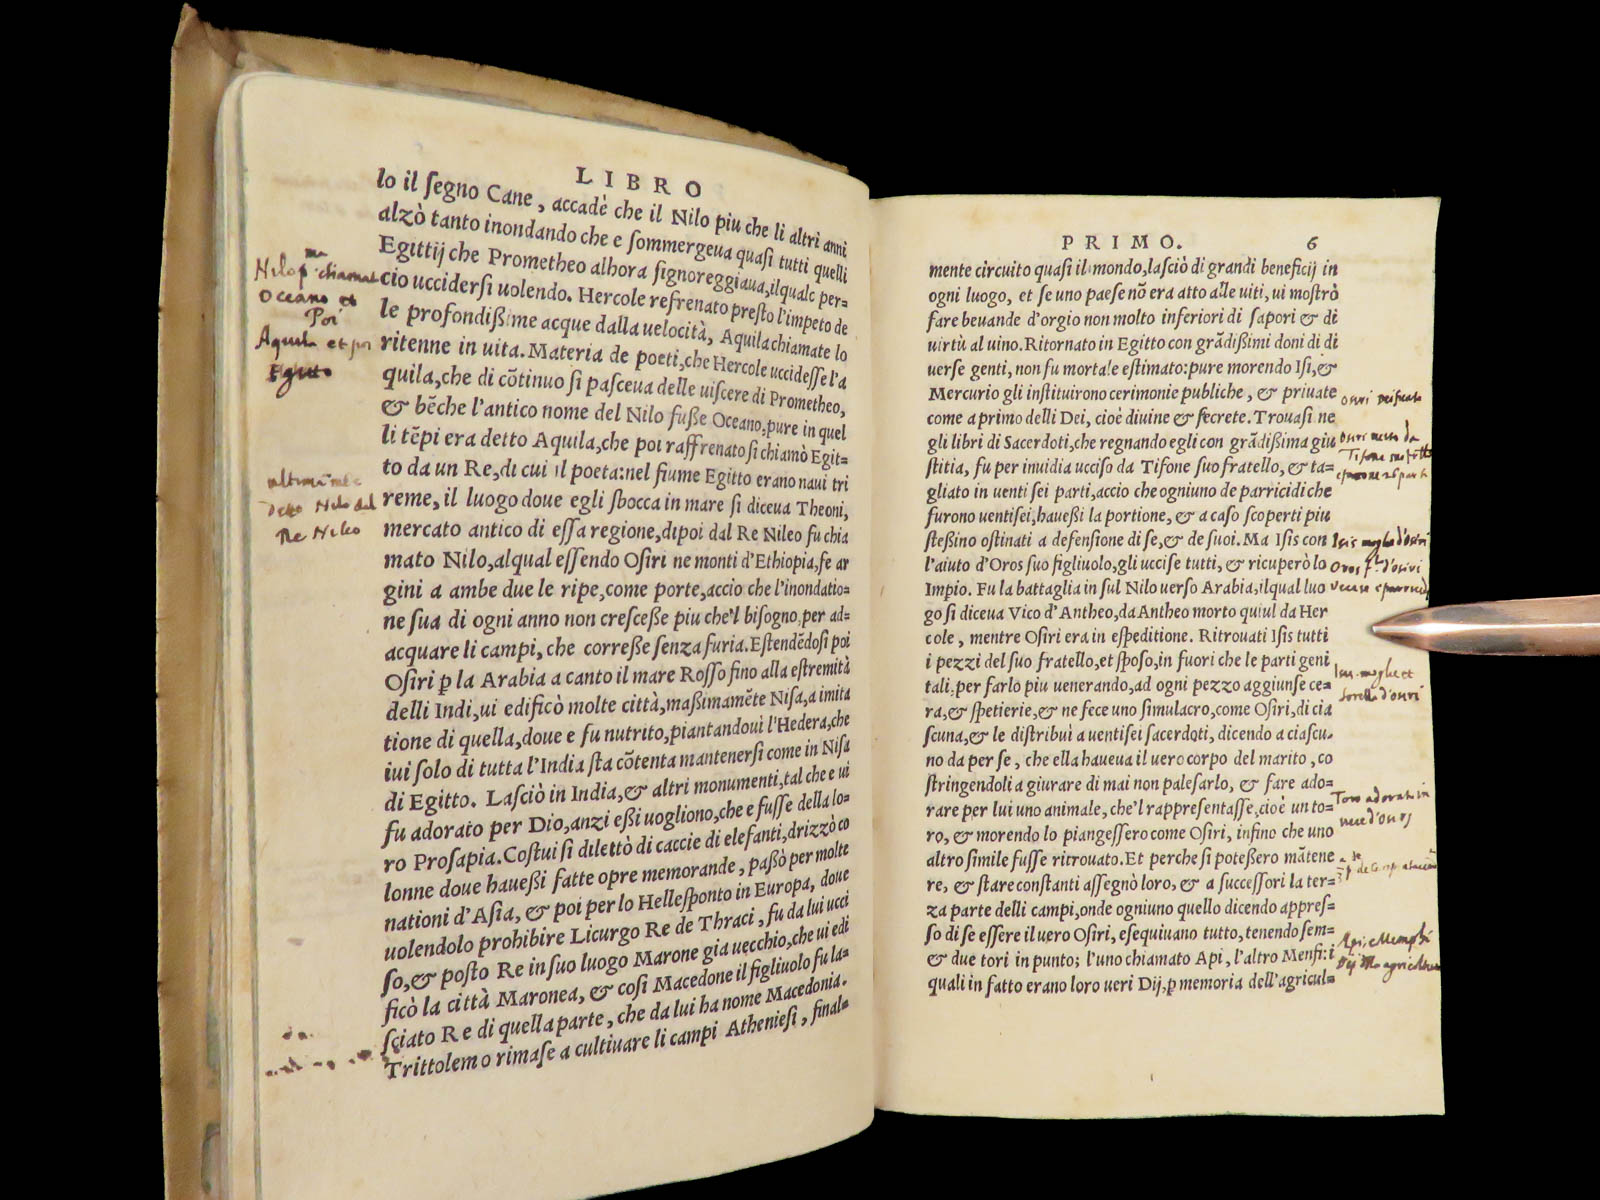 LIBRO
lo il ſegno Cane, accadè che il Nilo piu che li altri anni
alzò tanto inondando che e ſommergeua quaſi tutti quelli
Egittij che Prometheo alhora ſignoreggiaua, ilquale per=
cio ucciderſi uolendo. Hercole refrenato preſto l'impeto de
le profondißime acque dalla uelocità, Aquila chiamate lo
ritenne in uita. Materia de poeti, che Hercole uccideſſe l'a
quila, che di cõtinuo ſi paſceua delle uiſcere di Prometheo,
& bẽche l'antico nome del Nilo fuße Oceano, pure in quel
li tẽpi era detto Aquila, che poi raffrenato ſi chiamò Egit=
to da un Re, di cui il poeta: nel fiume Egitto erano naui tri
reme, il luogo doue egli sbocca in mare ſi diceua Theoni,
mercato antico di eſſa regione, dipoi dal Re Nileo fu chia
mato Nilo, alqual eſſendo Oſiri ne monti d'Ethiopia, fe ar
gini a ambe due le ripe, come porte, accio che l'inondatio=
ne ſua di ogni anno non creſceße piu che'l biſogno, per ad=
acquare li campi, che correße ſenza furia. Eſtendẽdoſi poi
Oſiri ꝑ la Arabia a canto il mare Roſſo fino alla eſtremità
delli Indi, ui edificò molte città, maßimamẽte Niſa, a imita
tione di quella, doue e fu nutrito, piantandoui l'Hedera, che
iui ſolo di tutta l'India ſta cõtenta mantenerſi come in Niſa
di Egitto. Laſciò in India, & altri monumenti, tal che e ui
fu adorato per Dio, anzi eßi uogliono, che e fuſſe della lo=
ro Proſapia. Coſtui ſi dilettò di caccie di elefanti, drizzò co
lonne doue haueßi fatte opre memorande, paßò per molte
nationi d'Aſia, & poi per lo Helleſponto in Europa, doue
uolendolo prohibire Licurgo Re de Thraci, fu da lui ucci
ſo, & poſto Re in ſuo luogo Marone gia uecchio, che ui edi
ficò la città Maronea, & coſi Macedone il figliuolo fu la=
ſciato Re di quella parte, che da lui ha nome Macedonia.
Trittolemo rimaſe a cultiuare li campi Athenieſi, final=
Nilo pma chiamat
Oceano et
Poi
Aquila et poi
Egitto
detto Nilo dal
Re Nileo
PRIMO. 6
mente circuito quaſi il mondo, laſciò di grandi beneficij in
ogni luogo, et ſe uno paeſe nõ era atto alle uiti, ui moſtrò
fare beuande d'orgio non molto inferiori di ſapori & di
uirtù al uino. Ritornato in Egitto con grãdißimi doni di di
uerſe genti, non fu mortale eſtimato: pure morendo Iſi, &
Mercurio gli inſtituirono cerimonie publiche, & priuate
come a primo delli Dei, cioè diuine & ſecrete. Trouaſi ne
gli libri di Sacerdoti, che regnando egli con grãdißima giu
ſtitia, fu per inuidia ucciſo da Tifone ſuo fratello, & ta=
gliato in uenti ſei parti, accio che ogniuno de parricidi che
furono uentiſei, haueßi la portione, & a caſo ſcoperti piu
ſteßino oſtinati a defenſione di ſe, & de ſuoi. Ma Iſis con
l'aiuto d'Oros ſuo figliuolo, gli ucciſe tutti, & ricuperò lo
Impio. Fu la battaglia in ſul Nilo uerſo Arabia, ilqual luo
go ſi diceua Vico d'Antheo, da Antheo morto quiui da Her
cole, mentre Oſiri era in eſpeditione. Ritrouati Iſis tutti
i pezzi del ſuo fratello, et ſpoſo, in fuori che le parti geni
tali, per farlo piu uenerando, ad ogni pezzo aggiunſe ce=
ra, & ſpetierie, & ne fece uno ſimulacro, come Oſiri, di cia
ſcuna, & le diſtribuì a uentiſei ſacerdoti, dicendo a ciaſcu=
no da per ſe, che ella haueua il uero corpo del marito, co
ſtringendoli a giurare di mai non paleſarlo, & fare ado=
rare per lui uno animale, che'l rappreſentaſſe, cioè un to=
ro, & morendo lo piangeſſero come Oſiri, infino che uno
altro ſimile fuſſe ritrouato. Et perche ſi poteßero mãtene
re, & ſtare conſtanti aſſegnò loro, & a ſucceſſori la ter=
za parte delli campi, onde ogniuno quello dicendo appreſ=
ſo di ſe eſſere il uero Oſiri, eſequiuano tutto, tenendo ſem=
& due tori in punto; l'uno chiamato Api, l'altro Menfi: i
quali in fatto erano loro ueri Dij, ꝑ memoria dell'agricul=
Osiri
Osiri da
Tifone
Isis moglie d'osiri
Oros d'osiri
moglie et
sorella d'osiri
Toro adorato in
vece d'osiri